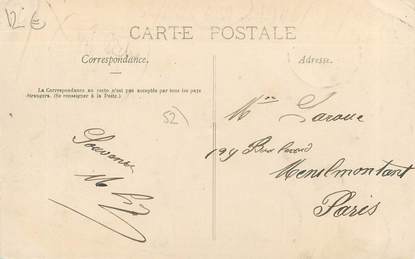 12 €
CARTE POSTALE
Correspondance.
Adresse.
La Correspondance au recto n'est pas acceptée par tous les pays
étrangers. (Se renseigner à la Poste.)
52
Souvenir
Mon
199 Boulevard
Menilmontant
Paris